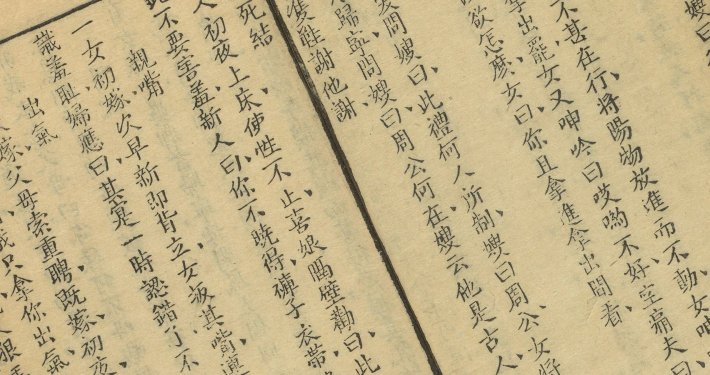 嫂曰
不甚在行、將陽物放進而不動、女呻
拿出罷女又呻吟曰哎喲不好、空痛夫曰
欲怎麽、女曰你且拿進拿出間看、
問嫂曰、此禮何人所制、嫂曰周公女將
歸寧問嫂曰、周公何在嫂云他是古人、
隻鞋謝他謝
死結
人初夜上床使性不止、喜娘隔壁勸曰、此
不要害羞、新人曰、你不曉得褲子衣帶、
親嘴
一女初嫁次早新郎背立、女扳其嘴連
識羞恥婦應曰、其寔一時認錯了、不
出氣
嫁父母索重聘、既嫁初夜、
只拿你出氣、